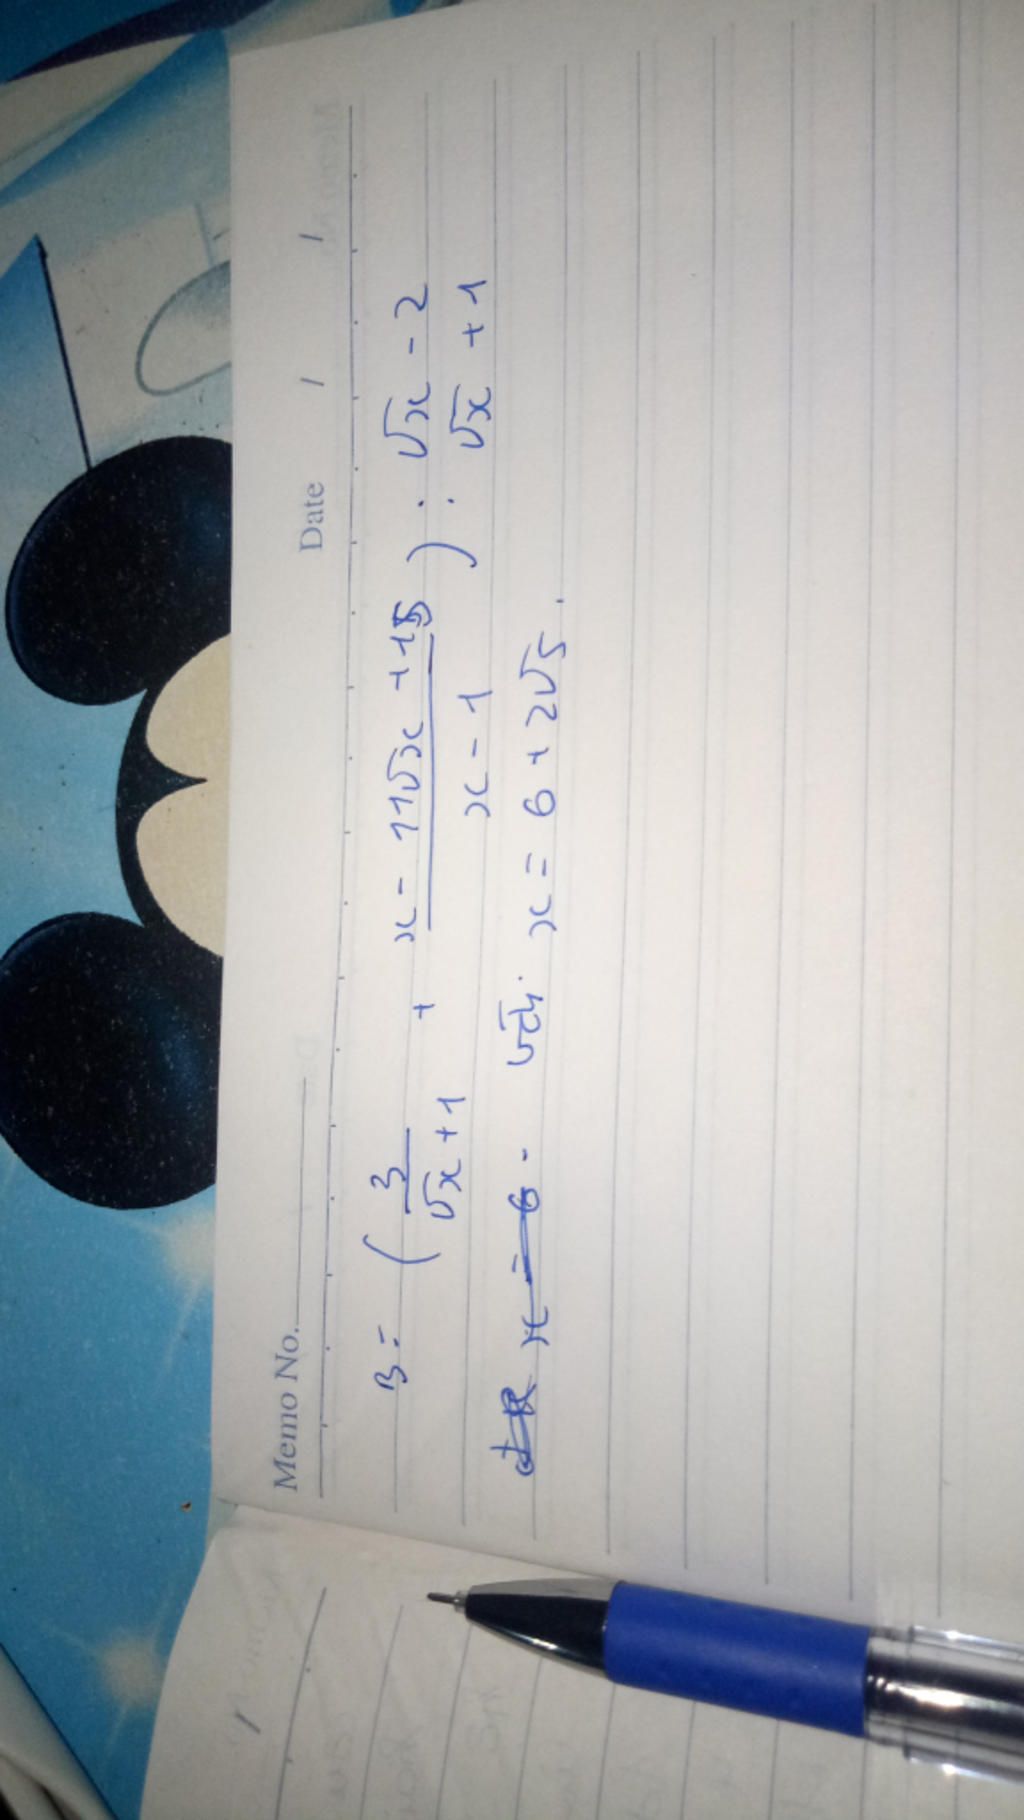 Memo No. Date / /
B = ( 3/(√x + 1) + (x - 11√x + 15)/(x - 1) ) : (√x - 2)/(√x + 1)
x = 6 - với x = 6 + 2√5.